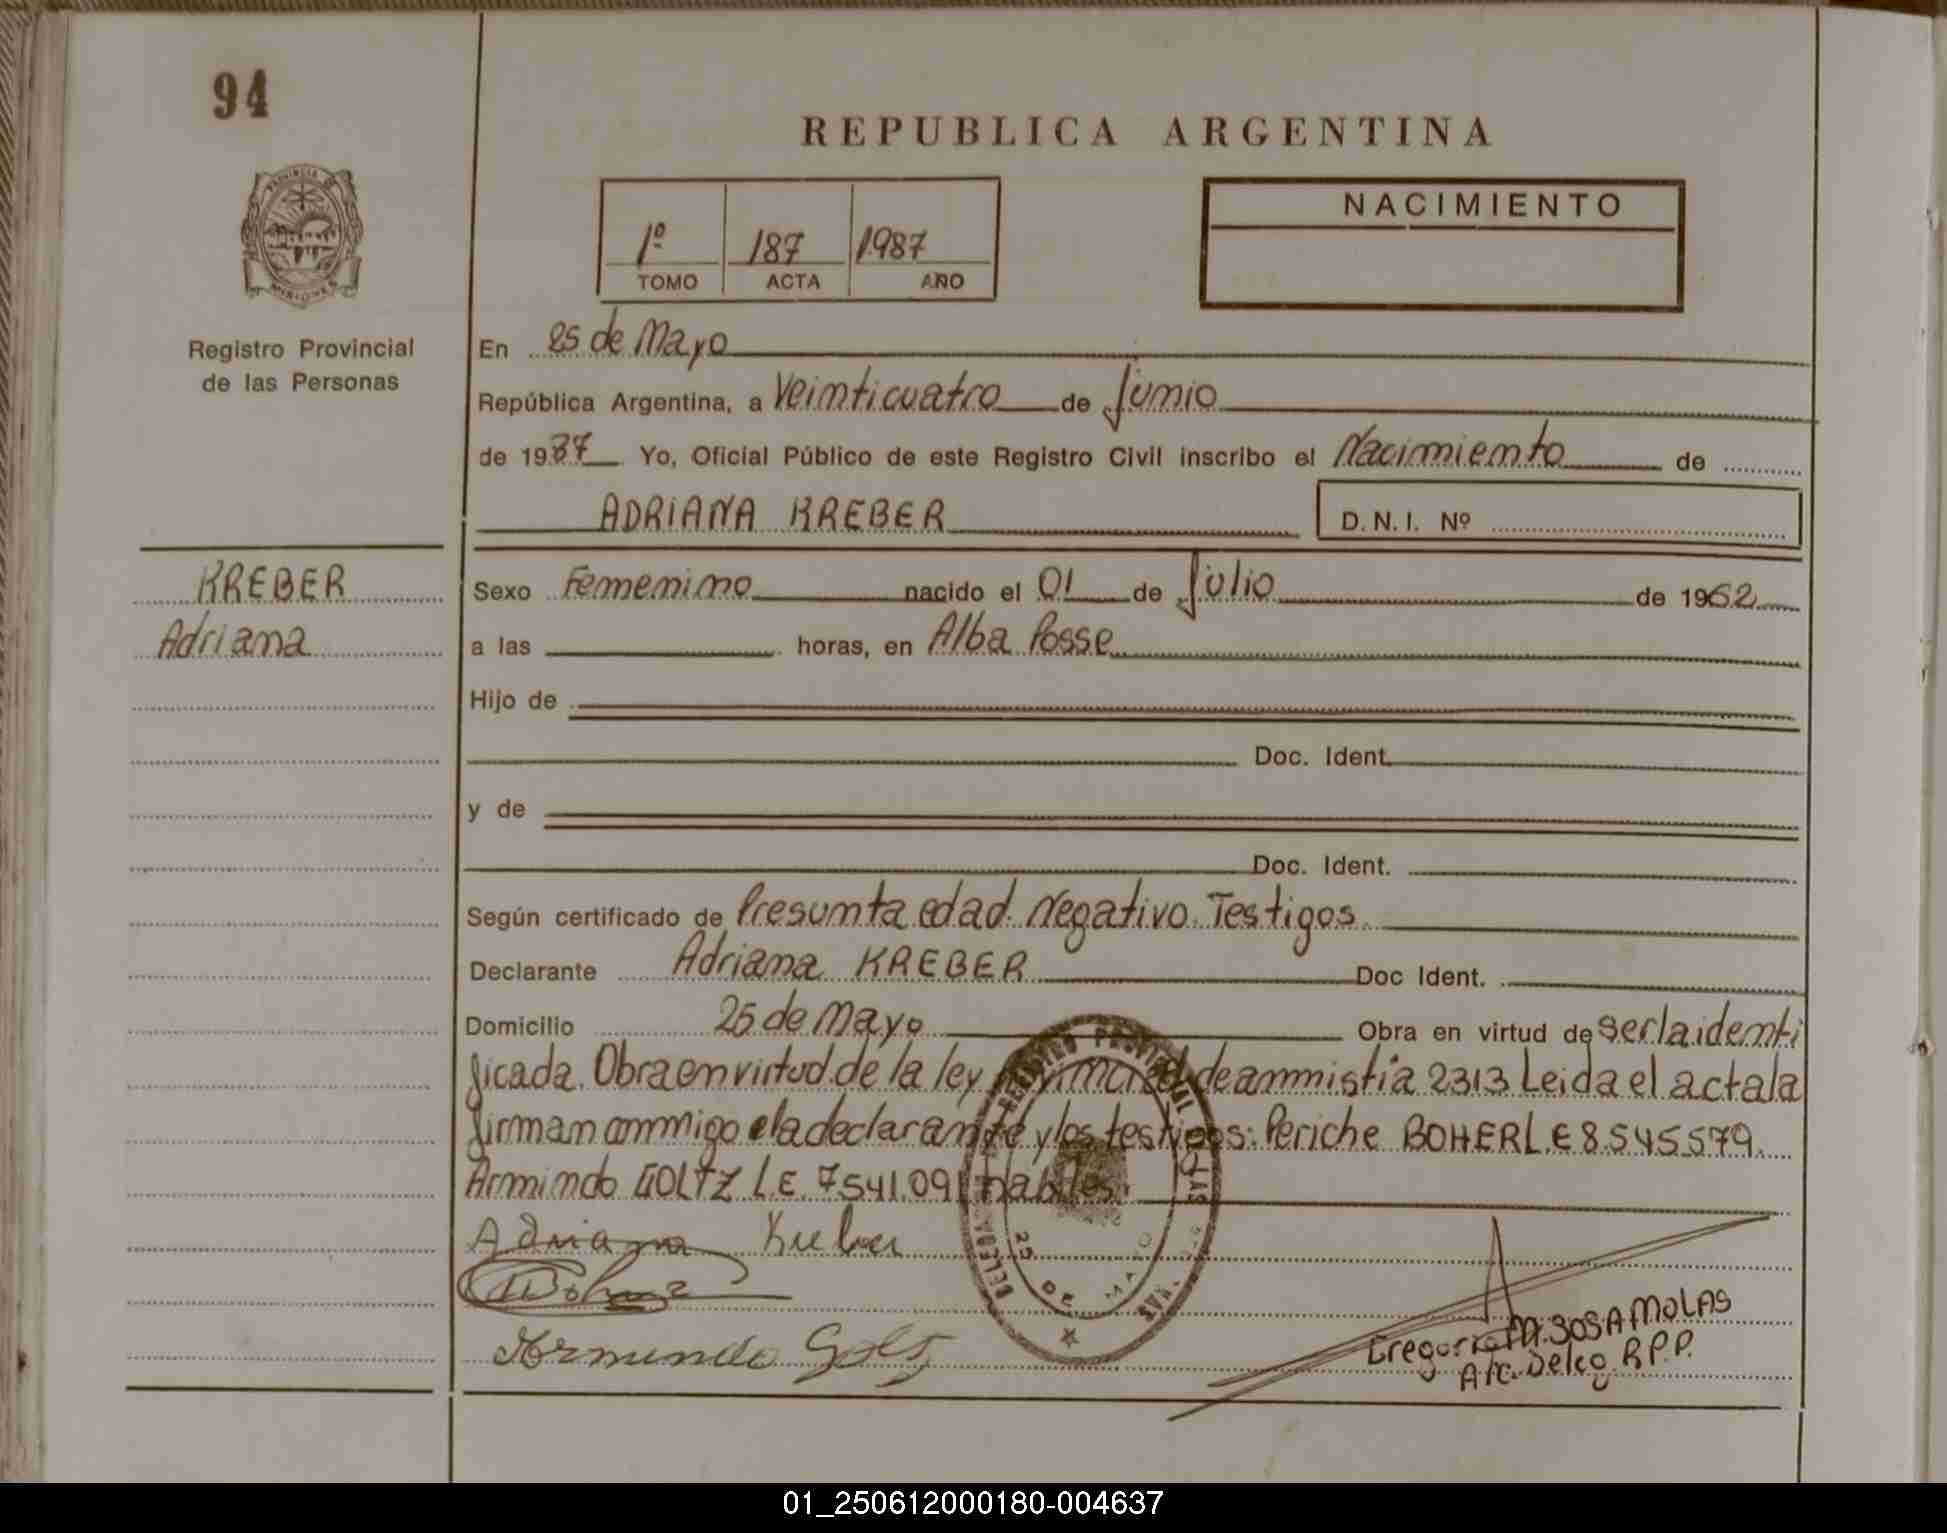 94
REPUBLICA ARGENTINA
PROVINCIA DE
MISIONES
1º 187 1987
TOMO ACTA AÑO
NACIMIENTO
Registro Provincial
de las Personas
En 25 de Mayo
República Argentina, a Veinticuatro de Junio
de 1987 Yo, Oficial Público de este Registro Civil inscribo el Nacimiento de
ADRIANA KREBER D.N.I. Nº
KREBER
Adriana
Sexo Femenino nacido el 01 de Julio de 1962
a las horas, en Alba Posse
Hijo de
Doc. Ident.
y de
Doc. Ident.
Según certificado de Presunta edad. Negativo. Testigos.
Declarante Adriana KREBER Doc Ident.
Domicilio 25 de Mayo Obra en virtud de ser la identi
ficada. Obra en virtud de la ley de ammistia 2313 Leida el acta la
firman conmigo la declarante y los testigos: Periche BOHER L.E 8.545.579.
Armindo GOLTZ L.E 7541.091 habiles.
Adriana Kreber
Armindo Goltz
REGISTRO PROVINCIAL
25 DE MAYO
Gregorio M. SOSA MOLAS
A/c. Deleg. R.P.P.
01_250612000180-004637